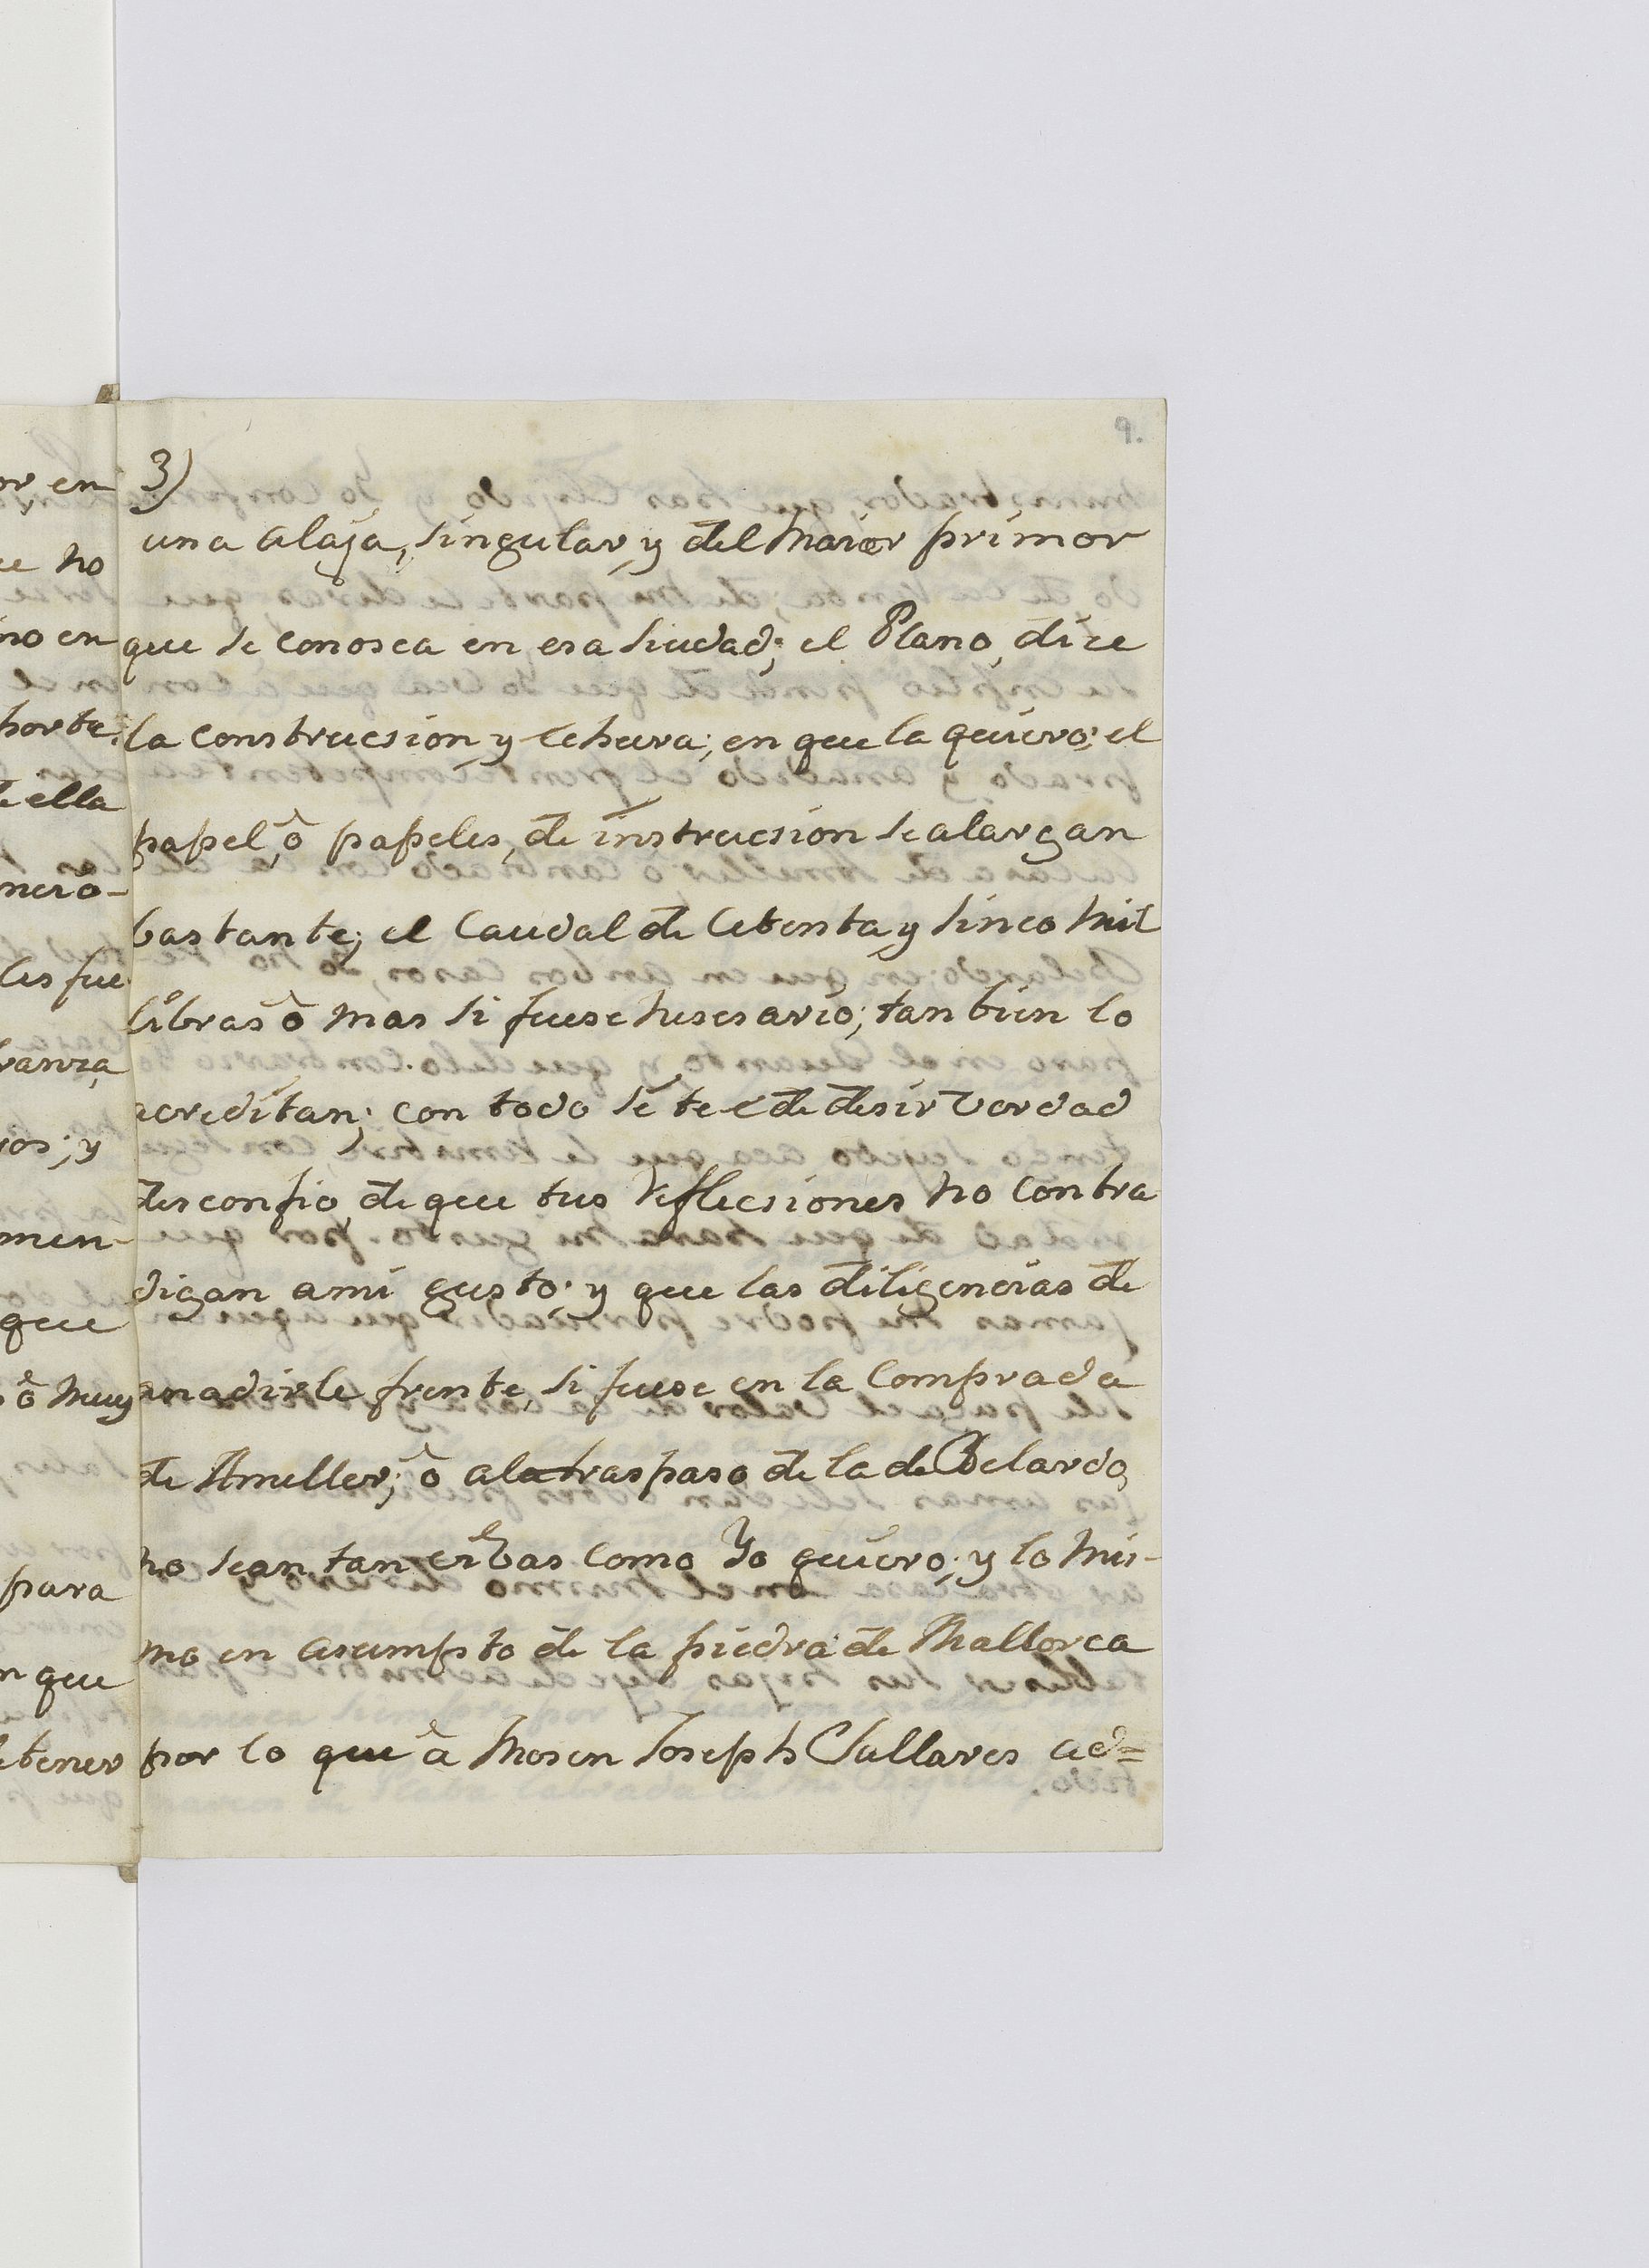 9.
3)
una alaja, singular, y del maior primor
que se conosca en esa siudad; el Plano, dice
la construcsion y echura; en que la quiero; el
papel, ò papeles, de instrucsion se alargan
bastante; el Caudal de Cetenta y sinco mil
libras ò mas si fuese nesesario; tanbien lo
acreditan; con todo si te e de desir verdad
desconfio, de que tus reflecsiones no contra
digan a mi gusto; y que las diligencias de
anadirle frente, si fuese en la Comprada
de Ameller; ò al traspaso de la de Belardo,
no sean tan como Yo quiero; y lo mis-
mo en asumpto de la piedra de Mallorca
por lo que à Mosen Joseph Clallares ad=
or, en
ue no
no en
porta.
e ella
nero-
les fue
vanza,
ios; y
men-
que
ò muy
para
n que
etener